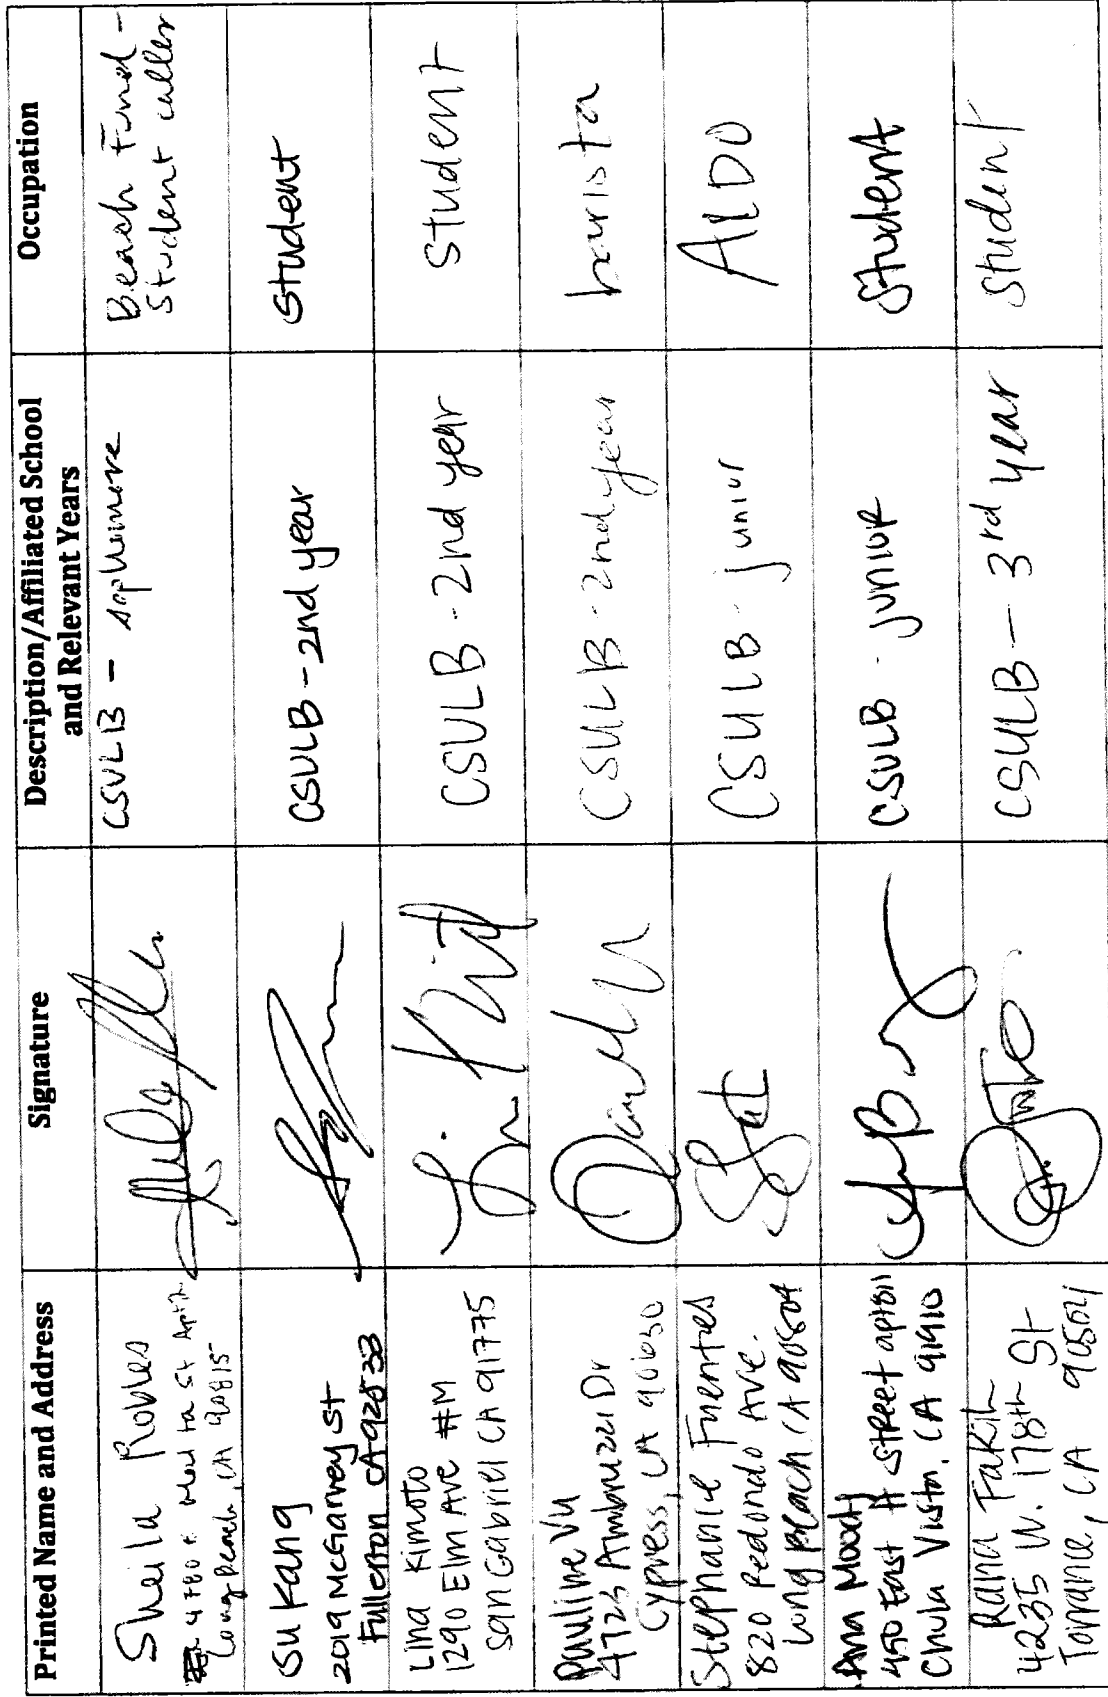 Printed Name and Address
Signature
Description/Affiliated School
and Relevant Years
Occupation
Sheila Robles
4780 E St
Long Beach, CA 90815
CSULB - sophomore
Beach Fund -
Student caller
Su Kang
2019 McGarvey St
Fullerton CA 92833
CSULB - 2nd year
Student
Lina Kimoto
1290 Elm Ave #M
San Gabriel CA 91775
CSULB - 2nd year
Student
Pauline Vu
4723 Ambruzzi Dr
Cypress, CA 90630
CSULB - 2nd year
barista
Stephanie Fuentes
820 Redondo Ave.
Long Beach, CA 90804
CSULB - junior
ALDO
Ana Moody
450 East H Street
Chula Vista, CA 91910
CSULB - junior
Student
Rana Fakih
4235 W. 178th St
Torrance, CA 90504
CSULB - 3rd year
student